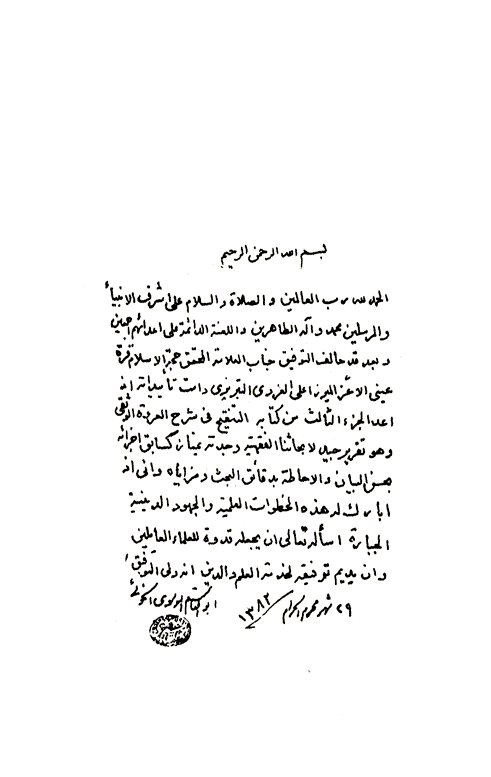 بسم الله الرحمن الرحيم
الحمد لله رب العالمين والصلاة والسلام على اشرف الانبياء
والمرسلين محمد وآله الطاهرين واللعنة الدائمة على اعدائهم اجمعين
وبعد قد حالف التوفيق جناب العلامة المحقق حجة الاسلام قرة
عيني الاعز الميرزا علي الغروي التبريزي دامت تأييداته انه
اعد الجزء الثالث من كتابه التنقيح في شرح العروة الوثقى
وهو تقرير جميل لابحاثنا الفقهية وجدته يمتاز كسابق اجزائه
بحسن البيان والاحاطة بدقائق البحث ومزاياه واني اذ
ابارك له هذه الخطوات العلمية والجهود الدينية
الجبارة اسأله تعالى ان يجعله قدوة للعلماء العاملين
وان يديم توفيقه لخدمة العلم والدين انه ولي التوفيق
٢٩ شهر محرم الحرام ١٣٨٢ ابو القاسم الموسوي الخوئي